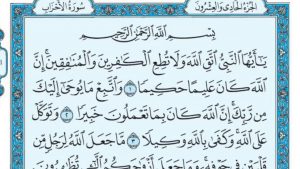 الجزء الحادي والعشرون
سورة الأحزاب
بِسْمِ ٱللَّهِ ٱلرَّحْمَٰنِ ٱلرَّحِيمِ
يَٰٓأَيُّهَا ٱلنَّبِىُّ ٱتَّقِ ٱللَّهَ وَلَا تُطِعِ ٱلْكَٰفِرِينَ وَٱلْمُنَٰفِقِينَ إِنَّ
ٱللَّهَ كَانَ عَلِيمًا حَكِيمًا ١ وَٱتَّبِعْ مَا يُوحَىٰٓ إِلَيْكَ
مِن رَّبِّكَ إِنَّ ٱللَّهَ كَانَ بِمَا تَعْمَلُونَ خَبِيرًا ٢ وَتَوَكَّلْ
عَلَى ٱللَّهِ وَكَفَىٰ بِٱللَّهِ وَكِيلًا ٣ مَّا جَعَلَ ٱللَّهُ لِرَجُلٍ مِّن
قَلْبَيْنِ فِى جَوْفِهِۦ وَمَا جَعَلَ أَزْوَٰجَكُمُ ٱلَّٰٓـِٔى تُظَٰهِرُونَ